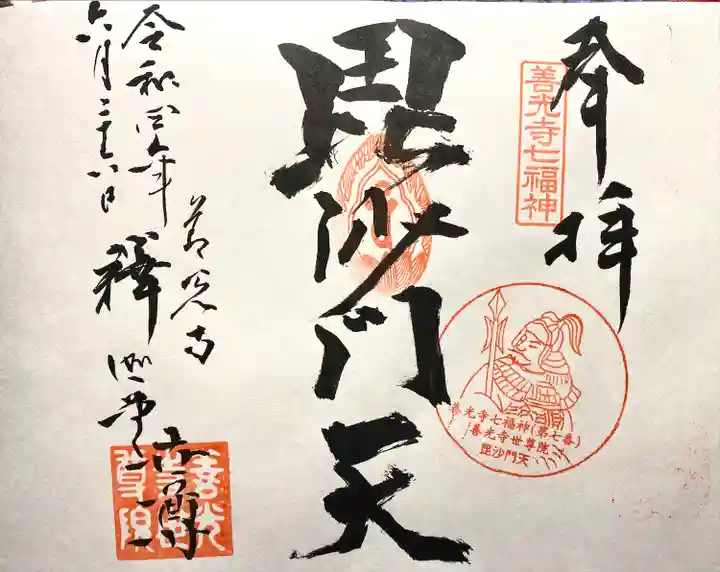 奉拝
善光寺七福神
善光寺七福神(第七番)
善光寺世尊院
毘沙門天
毘沙門天
善光寺
釋迦堂
世尊
令和四年
六月二十八日